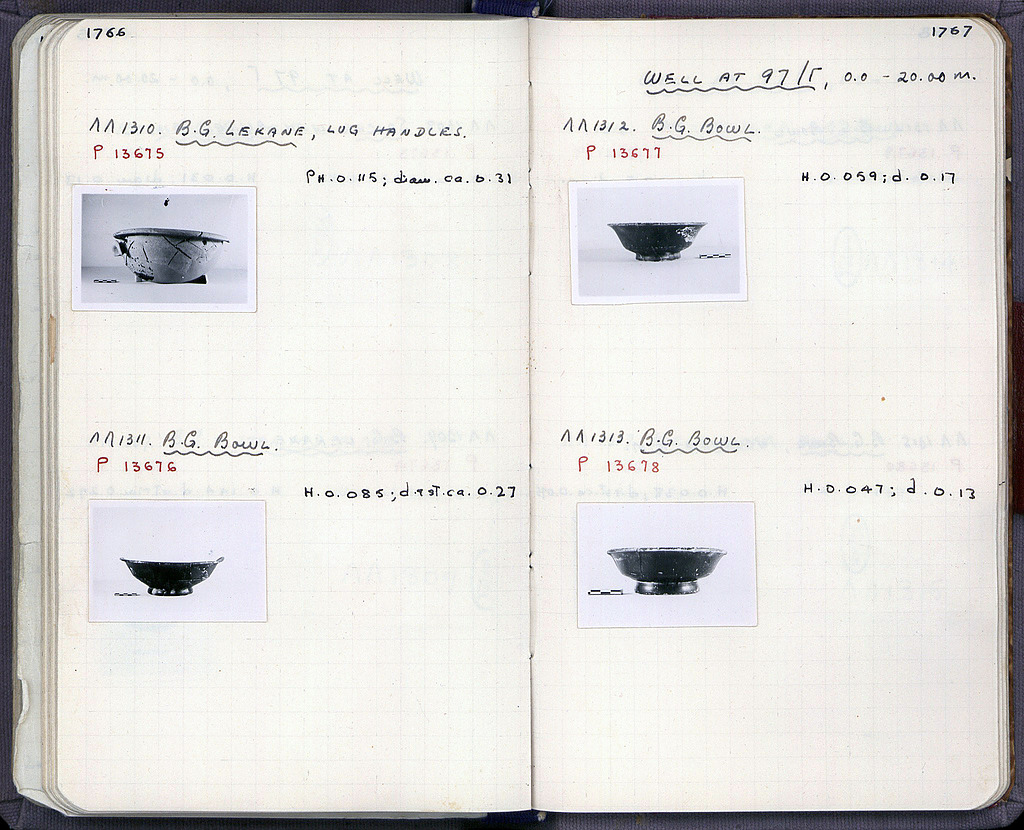 1766
ΛΛ1310. B.G. LEKANE, LUG HANDLES.
P 13675
PH.0.115; diam. ca. 0.31
ΛΛ1311. B.G. BOWL.
P 13676
H.0.085; d rst. ca. 0.27
1767
WELL AT 97/Γ, 0.0 - 20.00 M.
ΛΛ1312. B.G. BOWL.
P 13677
H.0.059; d. 0.17
ΛΛ1313. B.G. BOWL.
P 13678
H.0.047; d. 0.13